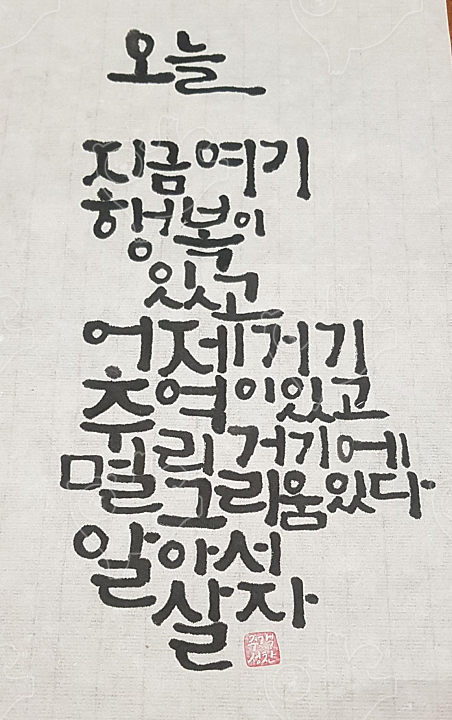 오늘
지금여기
행복이
있고
어제거기
추억이있고
멀리 거기에
그리움있다
알아서
살자